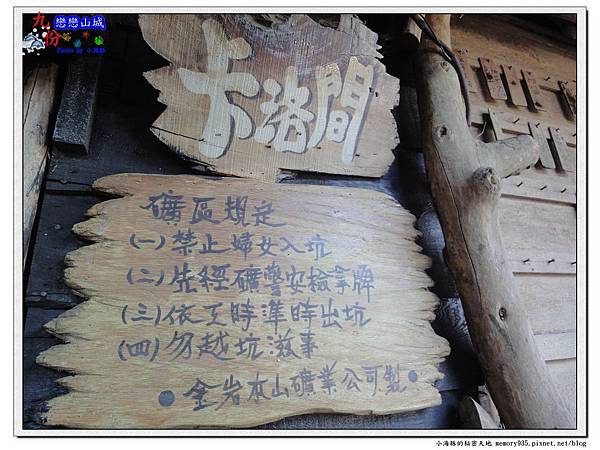 九份
戀戀山城
Photo by 小豬
卡洛間
礦區規定
(一)禁止婦女入坑
(二)先經礦警安檢拿牌
(三)依工時準時出坑
(四)勿越坑滋事
●金岩本山礦業公司製●
小海豚的秘密天地 memory935.pixnet.net/blog